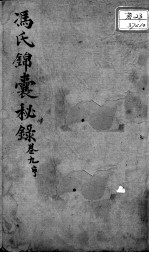 馮氏錦囊秘錄
卷九亨